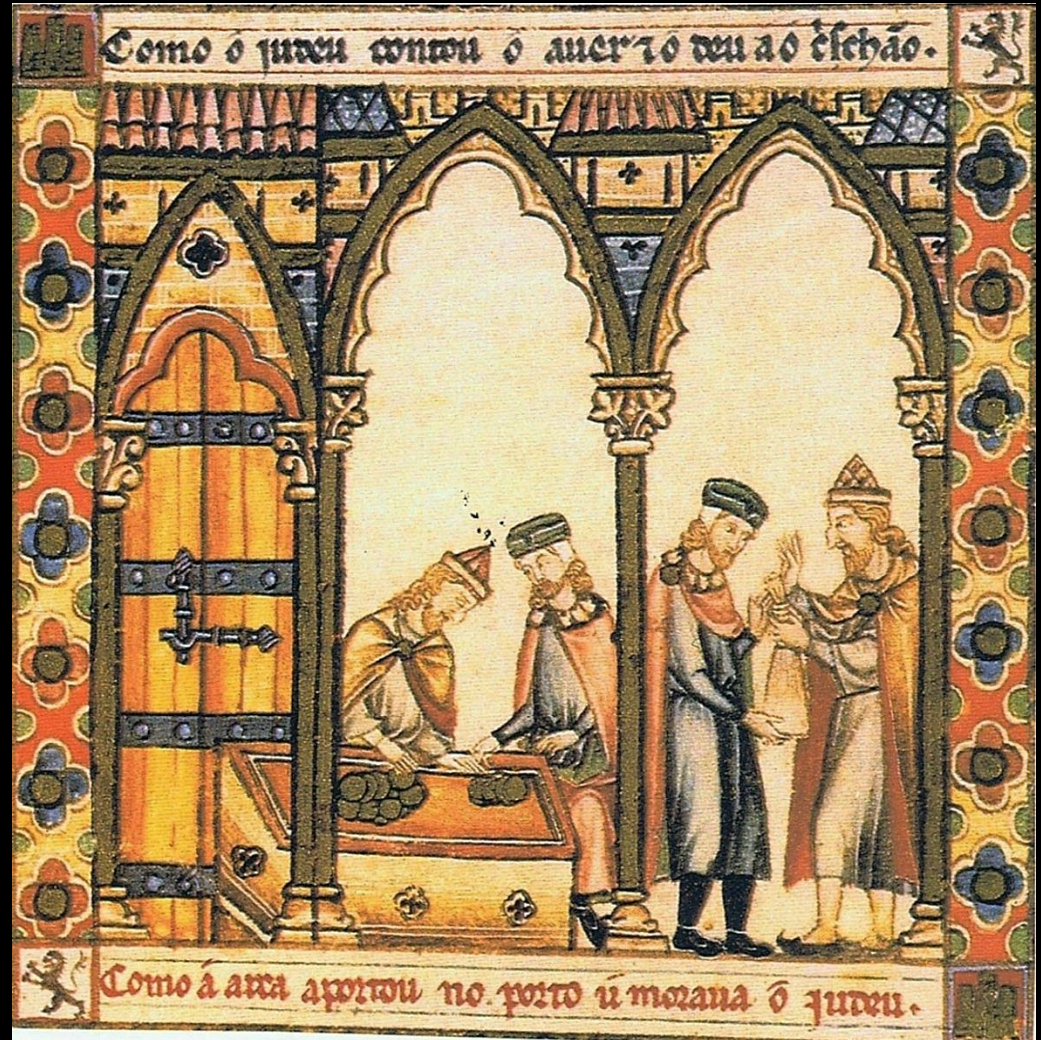 Como ó iudeu contou ó auer ⁊ ó deu a ó cr̃ischão.
Como á arca aportou no porto ú moraua ó iudeu.